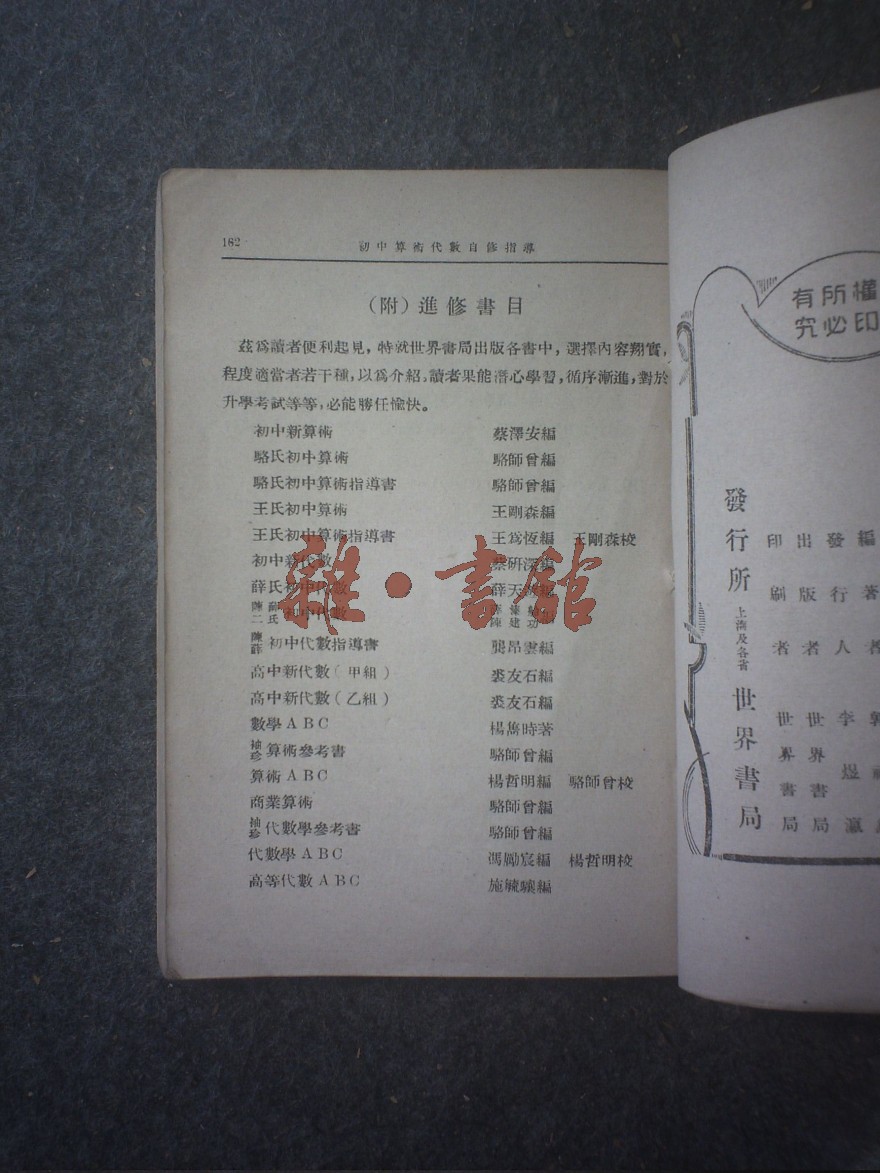 162 初中算術代數自修指導
（附）進修書目
茲爲讀者便利起見，特就世界書局出版各書中，選擇內容翔實，
程度適當者若干種，以爲介紹。讀者果能潛心學習，循序漸進，對於
升學考試等等，必能勝任愉快。
初中新算術 蔡澤安編
駱氏初中算術 駱師曾編
駱氏初中算術指導書 駱師曾編
王氏初中算術 王剛森編
王氏初中算術指導書 王爲恆編 王剛森校
初中新代數 蔡研深編
薛氏初中代數 薛天
陳薛二氏初中代數 陳建功
陳薛初中代數指導書 龔昂雲編
高中新代數（甲組） 裘友石編
高中新代數（乙組） 裘友石編
數學ABC 楊雋時著
袖珍算術參考書 駱師曾編
算術ABC 楊哲明編 駱師曾校
商業算術 駱師曾編
袖珍代數學參考書 駱師曾編
代數學ABC 馮勵宸編 楊哲明校
高等代數ABC 施毓驤編
雜·書館
權所有
印必究
編著者 郭
發行人 李煜瀛
出版者 世界書局
印刷者 世界書局
發行所 上海及各省 世界書局